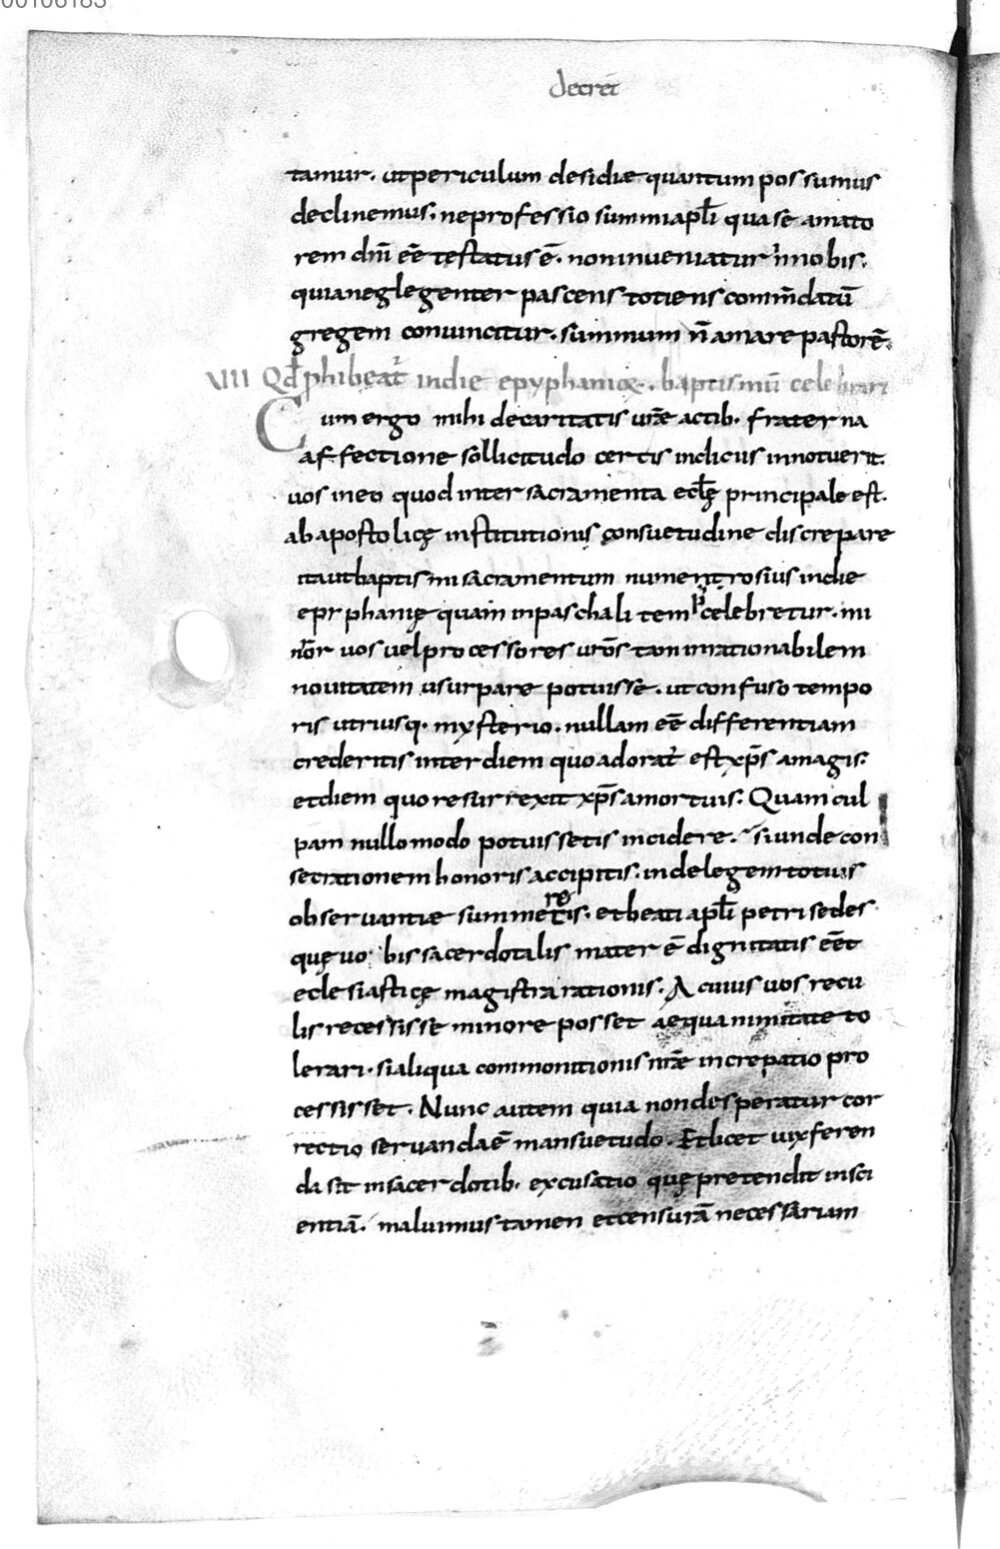 00106183
decret
tamur. ut periculum desidiae quantum possumus
declinemus. ne professio summi apłi qua se amato
rem dn̄i eē testatus ē. non inueniatur in nobis.
quia neglegenter pascens totiens comm̄datū
gregem conuincitur. summum n̄ amare pastorē.
VIII Qđ phibeat in die epyphaniae. baptismū celebrari
Cum ergo mihi de caritatis urāe actib. fraterna
affectione sollicitudo certis indiciis innotuerit.
uos in eo quod inter sacramenta eclę principale est.
ab apostolicę institutionis consuetudine discrepare
ita ut baptismi sacramentum numerosius in die
epiphanię quam in paschali temp̄ celebretur. mi
ror uos uel processores urōs tam inrationabilem
nouitatem usurpare potuisse. ut confuso tempo
ris utriusq. mysterio. nullam eē differentiam
crederitis inter diem quo adorat est xp̄s a magis.
et diem quo resurrexit xp̄s a mortuis. Quam cul
pam nullo modo potuissetis incidere. si unde con
secrationem honoris accipitis. inde legem totius
obseruantiae summeretis. et beati apłi petri sedes
quę uobis sacerdotalis mater ē dignitatis eēt
eclesiasticę magistra rationis. A cuius uos recu
lis recessisse minore posset aequanimitate to
lerari. si aliqua commonitionis nrāe increpatio pro
cessisset. Nunc autem quia non desperatur cor
rectio seruanda ē mansuetudo. Et licet uix feren
da sit in sacerdotib. excusatio quę pretendit insci
entiā. maluimus tamen et censurā necessariam